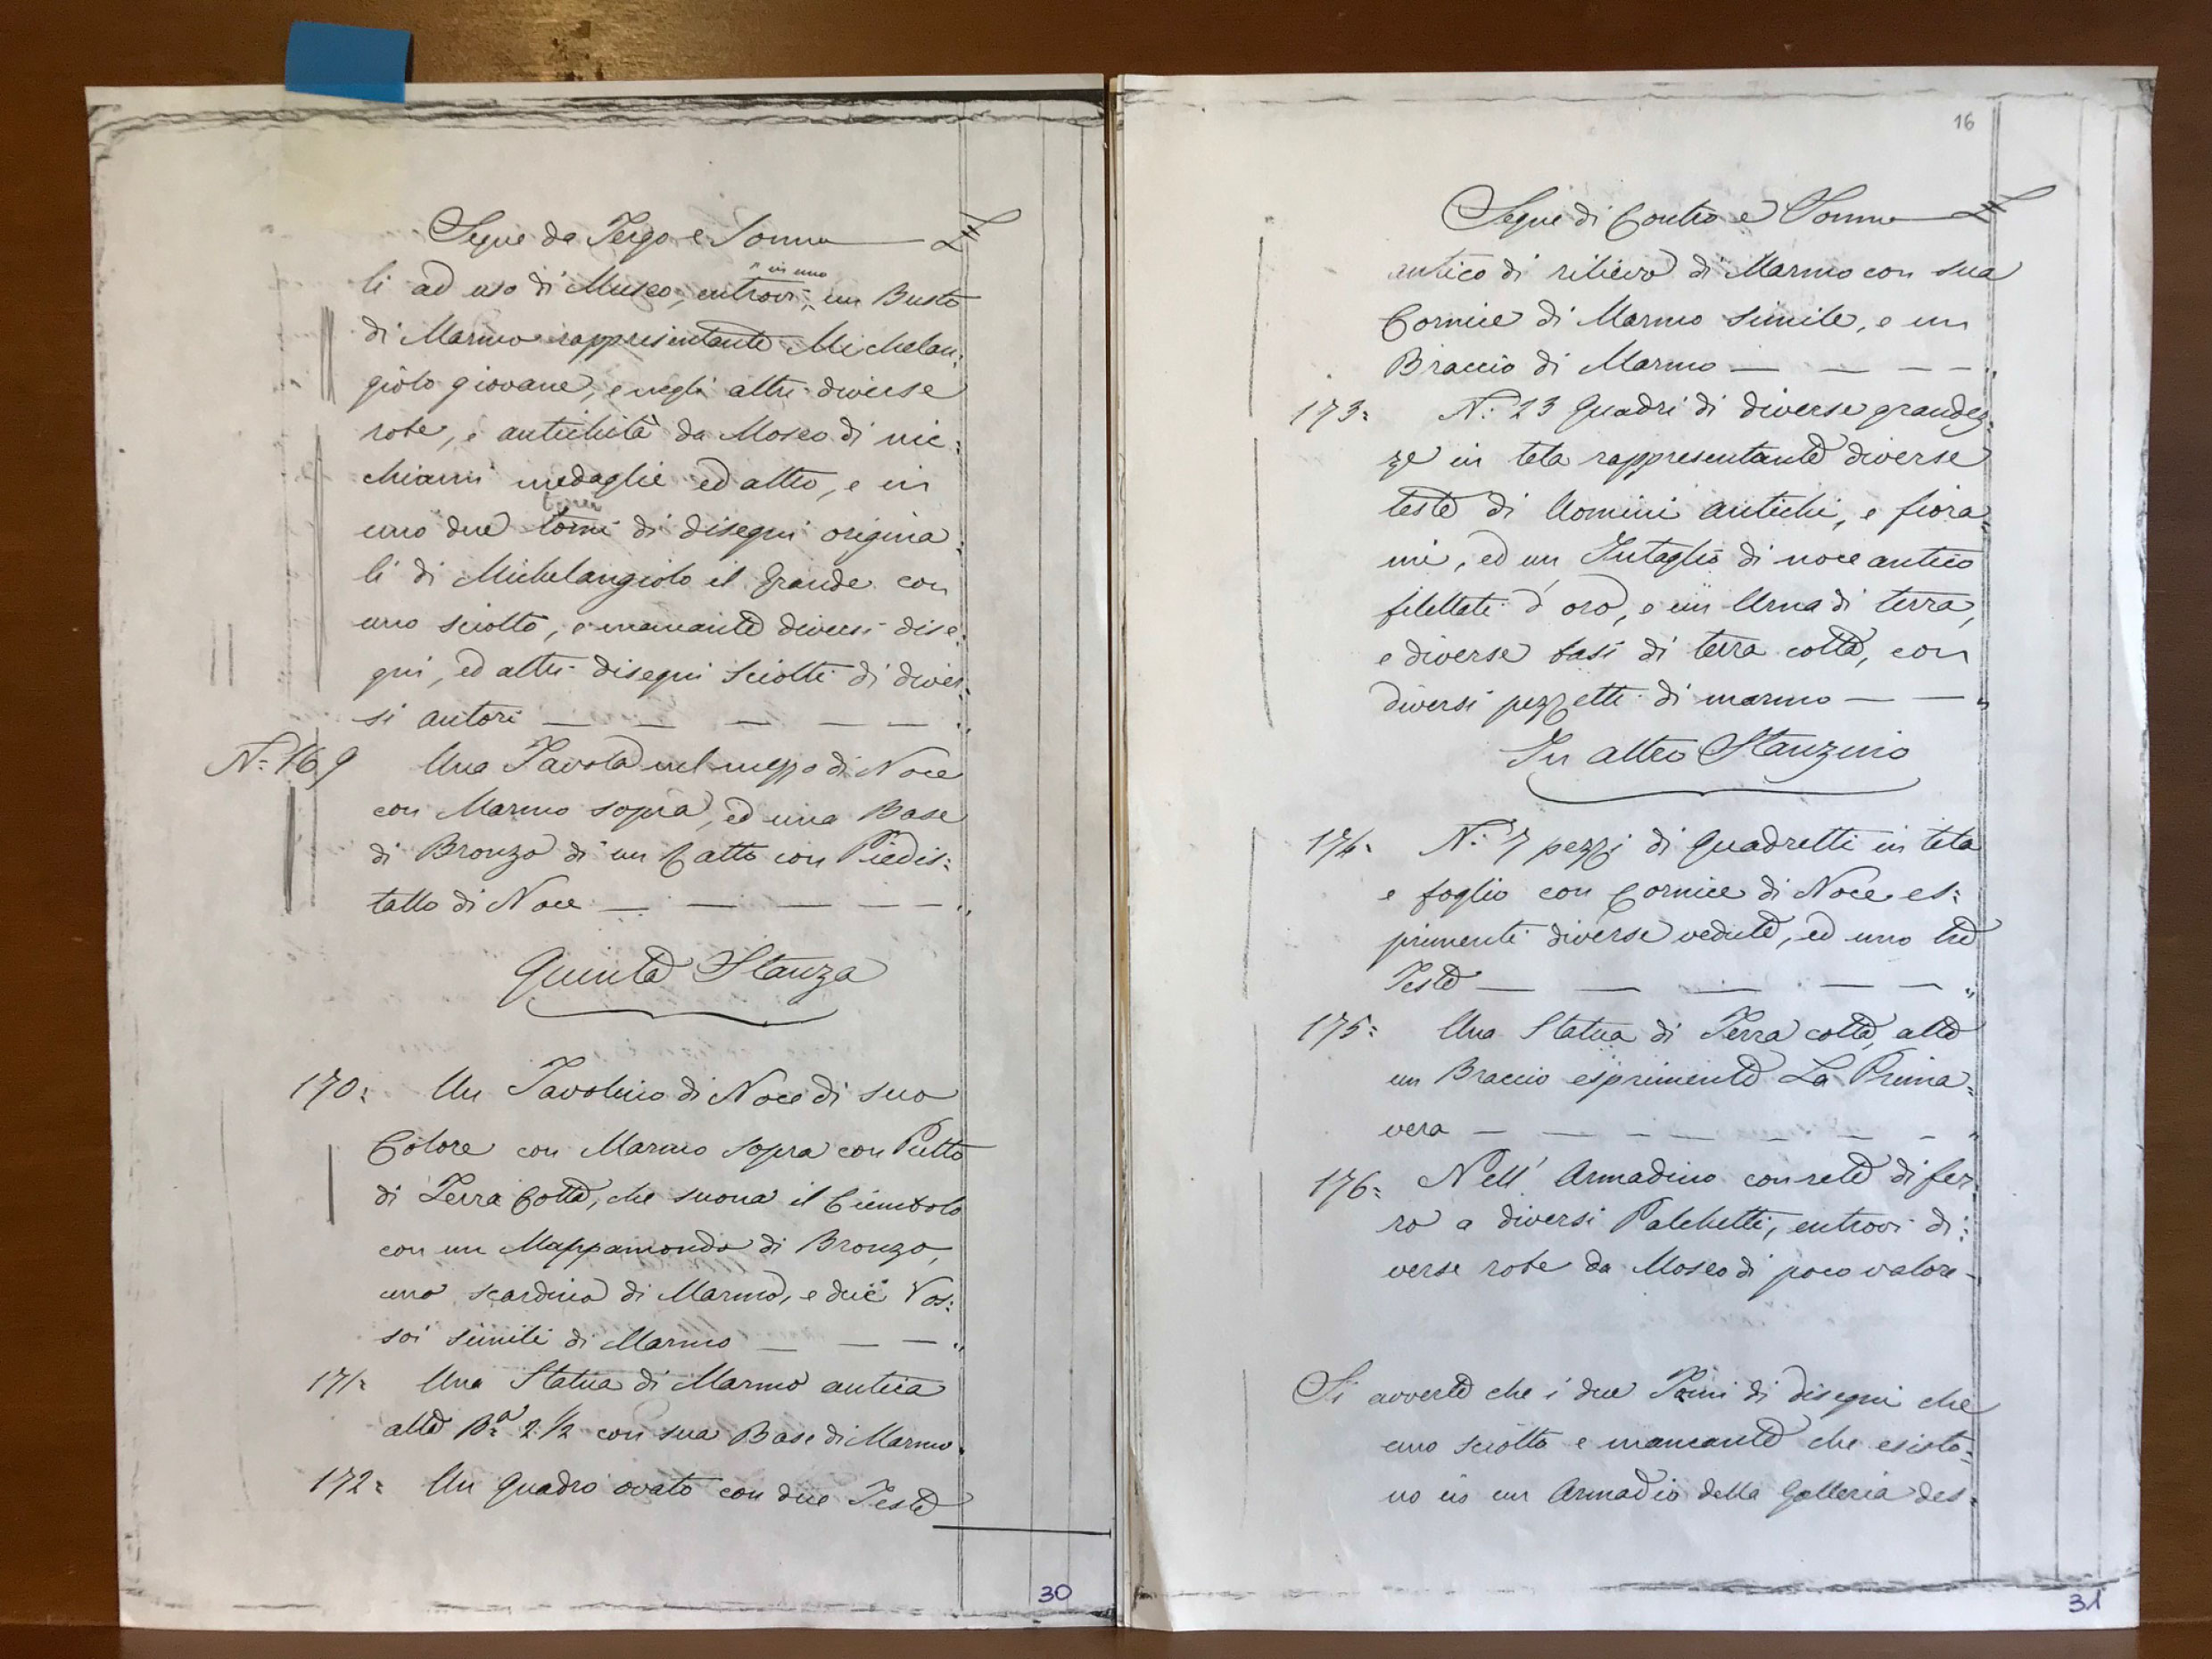 Segue da Tergo e Somma £
li ad uso di Museo, entrovi "in uno un Busto
di Marmo rappresentante Michelan:
giolo giovane, e negli altri diverse
robe, e antichità da Museo di nic:
chiami medaglie ed altro, e in
uno due tomi di disegni origina:
li di Michelangiolo il Grande con
uno sciolto, e mancante diversi dise:
gni, ed altri disegni sciolti di diver:
si autori — — — — — "
N: 169 Una Tavola nel mezzo di Noce
con Marmo sopra, ed una Base
di Bronzo di un Gatto con Piedis:
tallo di Noce — — — — — "
Quinta Stanza
170: Un Tavolino di Noce di suo
Colore con Marmo sopra con Putto
di Terra Cotta, che suona il Ciembolo
con un Mappamondo di Bronzo,
uno di Marmo, e due Vas:
soi simili di Marmo — — — "
171: Una Statua di Marmo antica
alta Ba: 2 1/2 con sua Base di Marmo "
172: Un Quadro ovato con due Teste
30
16
Segue di Contro e Somma £
antico di rilievo di Marmo con sua
Cornice di Marmo simile, e un
Braccio di Marmo — — — — "
173: N: 23 Quadri di diverse grandez:
ze in tela rappresentante diverse
teste di Uomini antichi, e fiora:
mi, ed un Intaglio di noce antico
filettati d'oro, e un Urna di terra,
e diverse basi di terra cotta, con
diversi pezzetti di marmo — — "
In altro Stanzino
174: N: 7 pezzi di Quadretti in tela
e foglio con Cornice di Noce es:
primenti diverse vedute, ed uno tre
Teste — — — — — "
175: Una Statua di Terra cotta, alta
un Braccio esprimente La Prima:
vera — — — — — — — "
176: Nell' Armadino con rete di fer:
ro a diversi Palchetti, entrovi di:
verse robe da Museo di poco valore "
Si avverte che i due Tomi di disegni che
uno sciolto e mancante che esisto:
no in un Armadio della Galleria des:
31